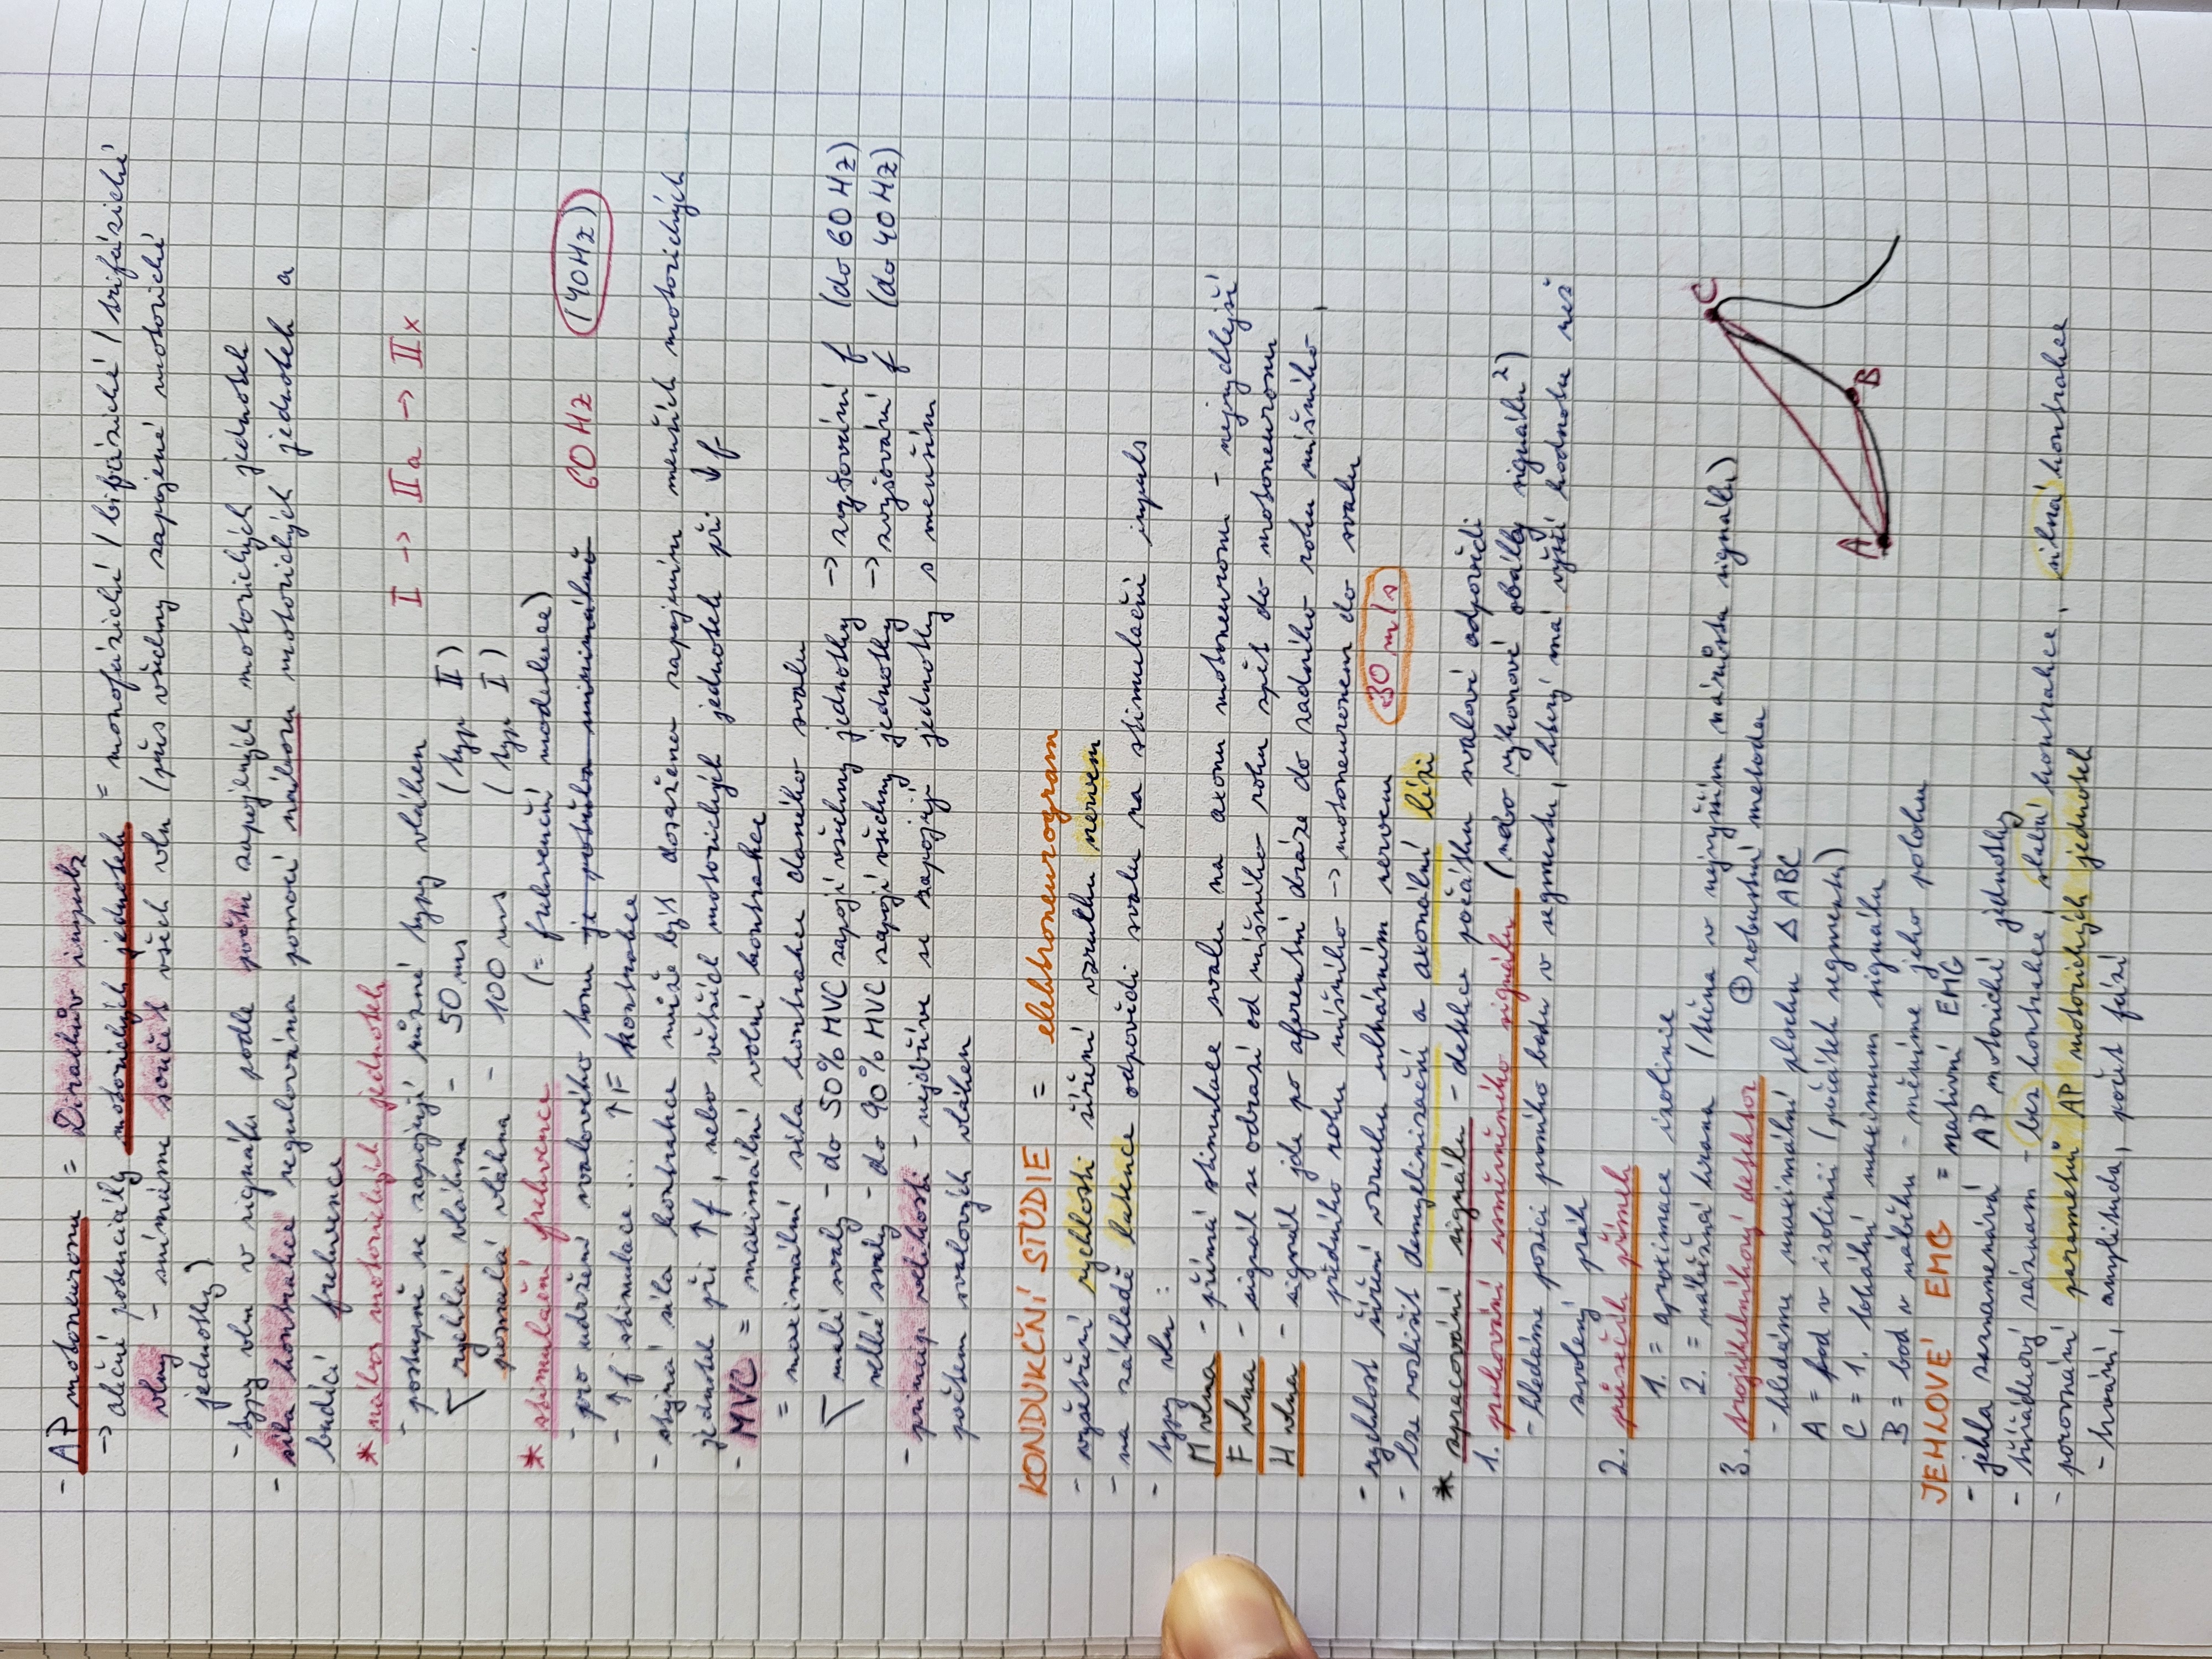 - AP motoneuronu = Diracův impulz
→ akční potenciály motorických jednotek = monofázické / bifázické / trifázické
vlny - snímáme součet všech vln (přes všechny zapojené motorické
jednotky)
- typy vln v signálu podle počtu zapojených motorických jednotek
- síla kontrakce regulována pomocí náboru motorických jednotek a
budící frekvence
* nábor motorických jednotek
- postupně se zapojují různé typy vláken I → IIa → IIx
rychlá vlákna - 50 ms (typ II)
pomalá vlákna - 100 ms (typ I)
* stimulační frekvence (= frekvenční modulace)
- pro udržení svalového tonu je potřeba minimálně 60 Hz (40 Hz)
- ↑f stimulace ... ↑F kontrakce
- stejná síla kontrakce může být dosažena zapojením menších motorických
jednotek při ↑f, nebo větších motorických jednotek při ↓f
- MVC = maximální volní kontrakce
= maximální síla kontrakce daného svalu
malé svaly - do 50% MVC zapojí všechny jednotky → zvyšování f (do 60 Hz)
velké svaly - do 90% MVC zapojí všechny jednotky → zvyšování f (do 40 Hz)
- princip velikosti - nejdříve se zapojují jednotky s menším
počtem svalových vláken
KONDUKČNÍ STUDIE = elektroneurogram
- vyšetření rychlosti šíření vzruchu nervem
- na základě latence odpovědi svalu na stimulační impuls
- typy vln :
M vlna - přímá stimulace svalu na axonu motoneuronu - nejrychlejší
F vlna - signál se odrazí od míšního rohu zpět do motoneuronu
H vlna - signál jde po aferentní dráze do zadního rohu míšního,
předního rohu míšního → motoneuronem do svalu
- rychlost šíření vzruchu ulnárním nervem 30 m/s
- lze rozlišit demyelinizační a axonální lézi
* zpracování signálu - detekce počátku svalové odpovědi
1. prahování usměrněného signálu (nebo výkonové obálky signálu²)
- hledáme pozici prvního bodu v segmentu, který má vyšší hodnotu než
zvolený práh
2. průsečík přímek
1. = aproximace izolinie
2. = náběžná hrana (tečna v nejvyšším nárůstu signálu)
3. trojúhelníkový detektor ⊕ robustní metoda
- hledáme maximální plochu △ ABC
A = bod v izolinii (počátek segmentu)
C = 1. lokální maximum signálu
B = bod v náběhu - měníme jeho polohu
C
A
B
JEHLOVÉ EMG = nativní EMG
- jehla zaznamenává AP motorické jednotky
- třířádkový záznam - bez kontrakce, slabá kontrakce, silná kontrakce
- porovnání parametrů AP motorických jednotek
- trvání, amplituda, počet fází